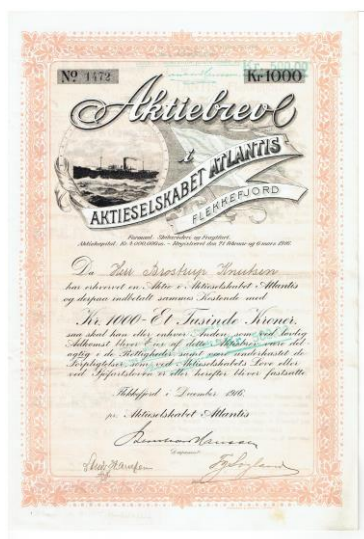 Kr. 500.00
No 1472 Kr 1000
Aktiebrev
i
AKTIESELSKABET ATLANTIS
FLEKKEFJORD
Formaal: Skibsrederi og Fragtfart.
Aktiekapital Kr. 4.000.000.00 - Registreret den 21 februar og 6 mars 1916
Da Herr Brostrup Knutsen
har erhvervet en Aktie i Aktieselskabet Atlantis
og derpaa indbetalt sammes Kostende med
Kr. 1000 - Et Tusinde Kroner,
saa skal han eller enhver Anden, som ved lovlig
Adkomst bliver Eier af dette Aktiebrev være del
agtig i de Rettigheder samt være underkastet de
Forpligtelser, som ved Aktieselskabets Love eller
ved Sjøfartsloven er eller herefter bliver fastsatte
Flekkefjord i December 1916
pr. Aktieselskabet Atlantis